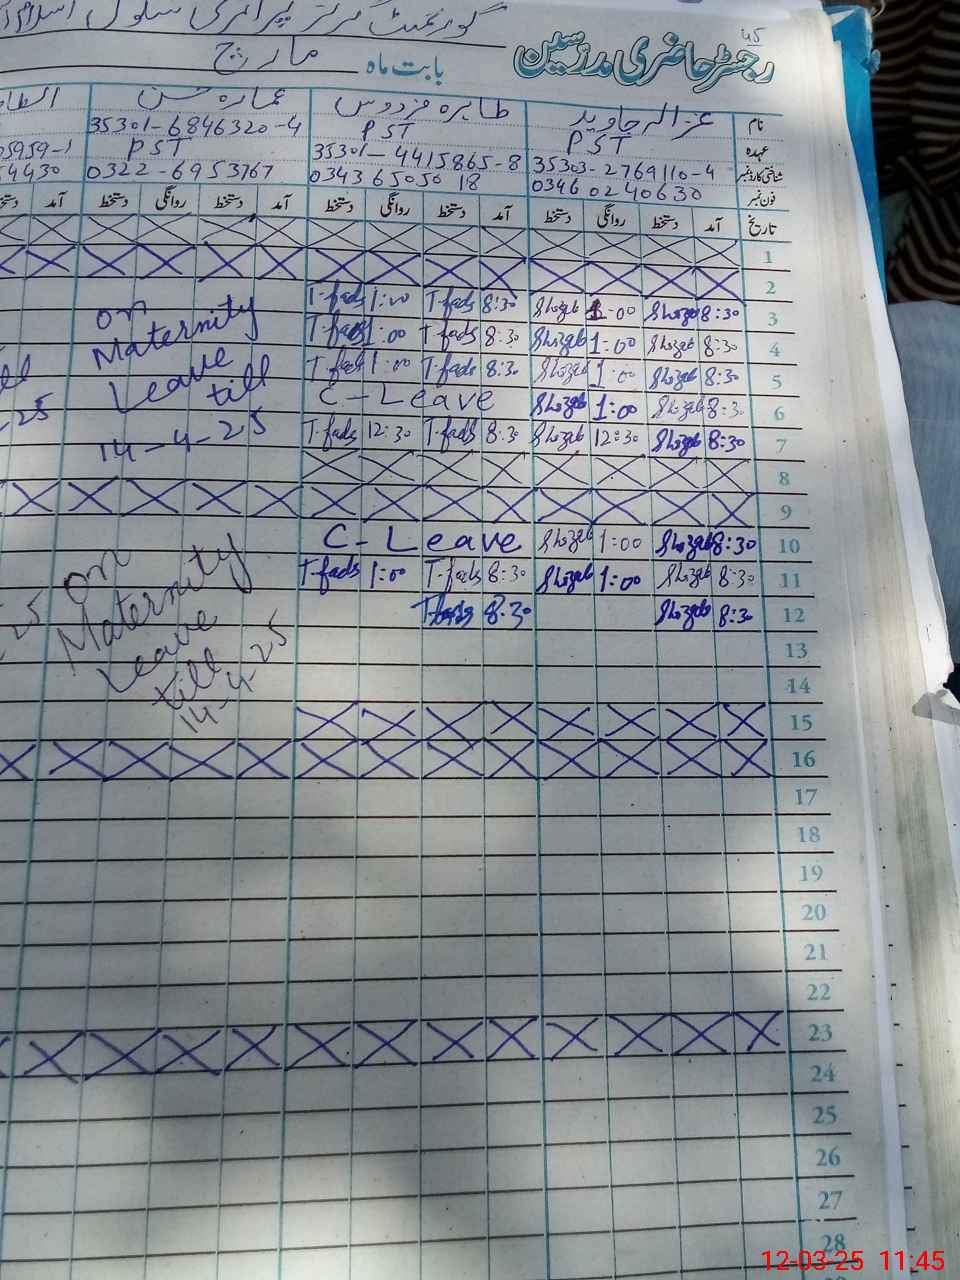 45
رجسٹر حاضری مدرسین
گورنمنٹ گرلز پرائمری سکول
بابت ماہ مارچ
نام
عہدہ
شناختی کارڈ نمبر
فون نمبر
غزالہ جاوید
PST
35303-2769110-4
0346 0240630
طاہرہ فردوس
PST
35301-4415865-8
0343 6505018
عمارہ حسن
35301-6846320-4
PST
0322-6953767
05959-1
54430
تاریخ آمد دستخط روانگی دستخط آمد دستخط روانگی دستخط آمد دستخط روانگی دستخط آمد
1
2
3 8:30 Shozab 1:00 Shozab 8:30 T-fads 1:00 T-fads
4 8:30 Shozab 1:00 Shozab 8:30 T-fads 1:00 T-fads
5 8:30 Shozab 1:00 Shozab 8:30 T-fads 1:00 T-fads
6 8:30 Shozab 1:00 Shozab C-Leave
7 8:30 Shozab 12:30 Shozab 8:30 T-fads 12:30 T-fads
8
9
10 8:30 Shozab 1:00 Shozab C-Leave
11 8:30 Shozab 1:00 Shozab 8:30 T-fads 1:00 T-fads
12 8:30 Shozab 8:30 T-fads
13
14
15
16
17
18
19
20
21
22
23
24
25
26
27
28
on
Maternity
Leave
till
14-4-25
on
Maternity
Leave
till
14-4-25
12-03-25 11:45